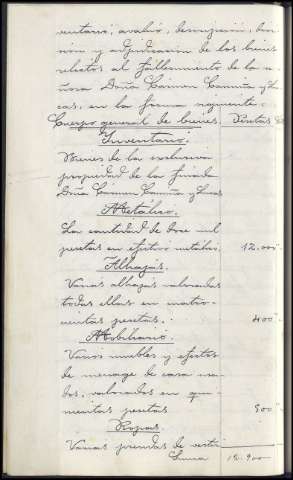 ventario, avalúo, descripción, divi
sión y adjudicación de los bienes
relictos al fallecimiento de la se
ñora Doña Carmen Camiña y Lu
cas, en la forma siguiente.
Cuerpo general de bienes. Pesetas
Inventario.
Bienes de la exclusiva
propiedad de la finada
Doña Carmen Camiña y Lucas
Metálico.
La cantidad de doce mil
pesetas en efectivo metálico. 12.000
Alhajas.
Varias alhajas valoradas
todas ellas en cuatro-
cientas pesetas. 400
Mobiliario.
Varios muebles y efectos
de menage de casa usa
dos, valorados en qui-
nientas pesetas 500
Ropas.
Varias prendas de vestir
Suma 12.900